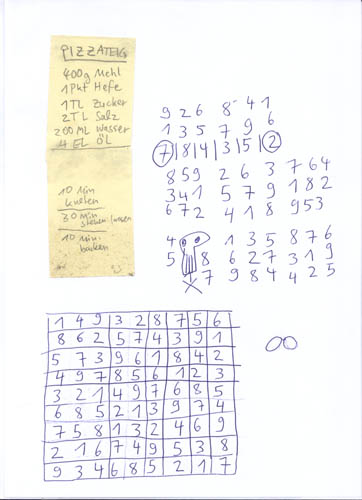 PIZZATEIG
400g Mehl
1 Pkt Hefe
1TL Zucker
2TL Salz
200 ML Wasser
4 EL ÖL
10 min
kneten
30 min
stehen lassen
10 min.
backen
9 2 6 8 4 1
1 3 5 7 9 6
7 | 8 | 4 | 3 | 5 | 2
8 5 9 2 6 3 7 6 4
3 4 1 5 7 9 1 8 2
6 7 2 4 1 8 9 5 3
4 1 3 5 8 7 6
5 8 6 2 7 3 1 9
7 9 8 4 4 2 5
1 4 9 3 2 8 7 5 6
8 6 2 5 7 4 3 9 1
5 7 3 9 6 1 8 4 2
4 9 7 8 5 6 1 2 3
3 2 1 4 9 7 6 8 5
6 8 5 2 1 3 9 7 4
7 5 8 1 3 2 4 6 9
2 1 6 7 4 9 5 3 8
9 3 4 6 8 5 2 1 7